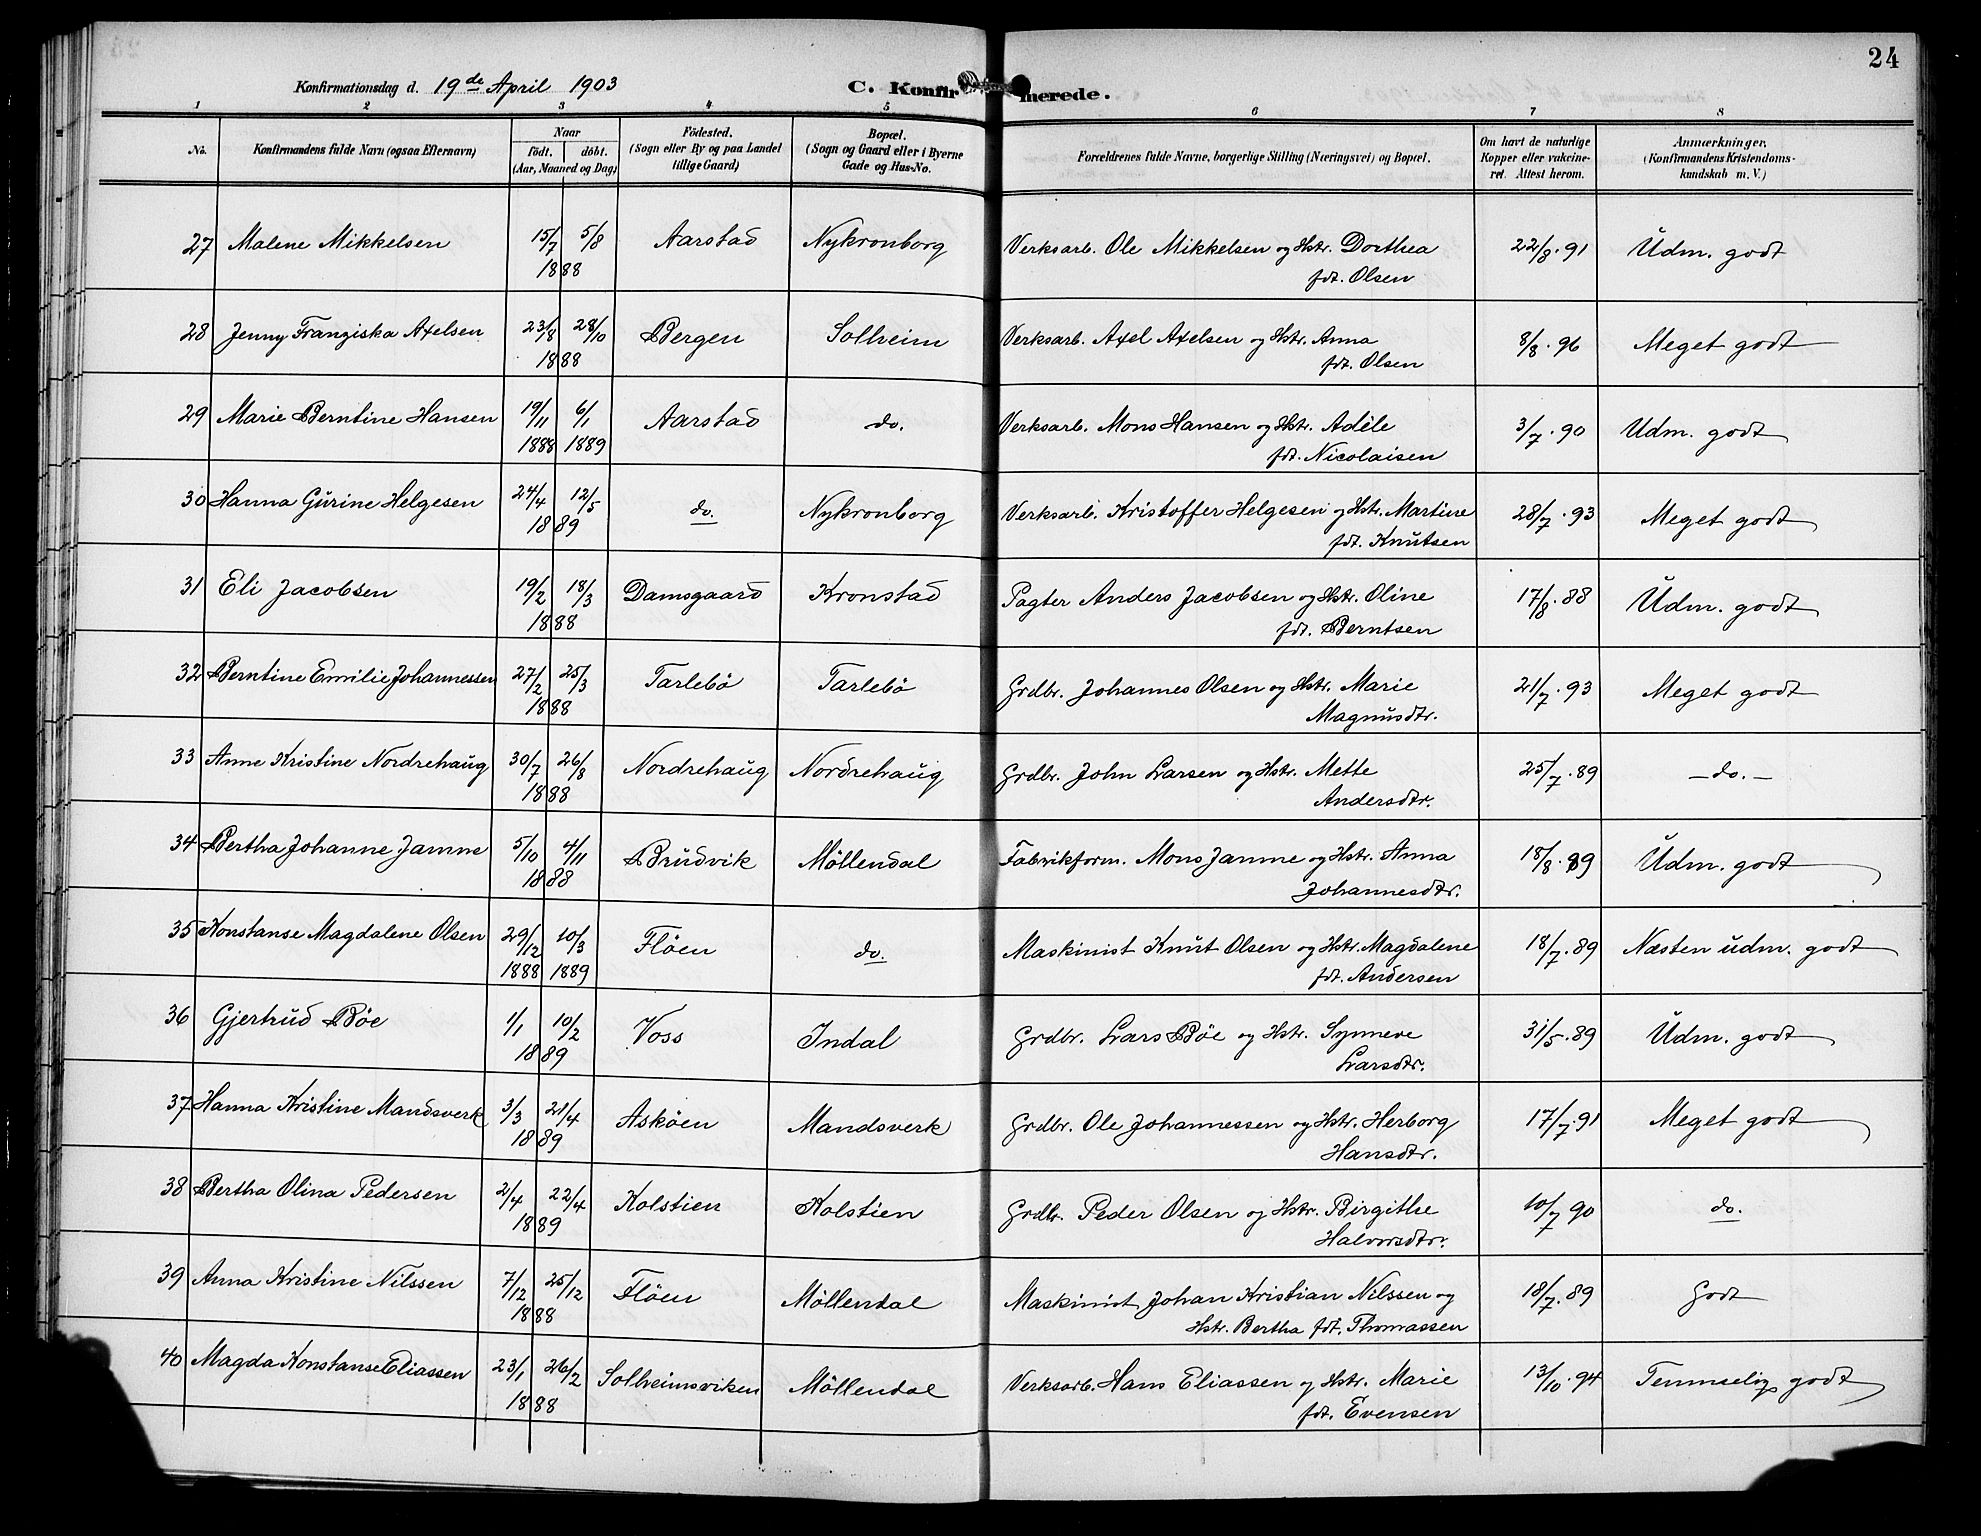 24
Konfirmationsdag d. 19de April 1903 C. Konfirmerede.
1 2 3 4 5 6 7 8
No. Konfirmandens fulde Navn (ogsaa Efternavn) Naar født. døbt. (Aar, Maaned og Dag) Födested. (Sogn eller By og paa Landet tillige Gaard) Bopæl. (Sogn og Gaard eller i Byerne Gade og Hus-No. Forældrenes fulde Navne, borgerlige Stilling (Næringsvei) og Bopæl. Om havt de naturlige Kopper eller vakcineret. Attest herom. Anmærkninger. (Konfirmandens Kristendomskundskab m. V.)
27 Malene Mikkelsen 15/7 5/8 Aarstad Nykronborg Verksarb. Ole Mikkelsen og Hstr. Dorthea 22/8. 91 Udm. godt
1888 fdt. Olsen
28 Jenny Franziska Axelsen 23/8 28/10 Bergen Solheim Verksarb. Axel Axelsen og Hstr. Anna 8/8. 96 Meget godt
1888 fdt. Olsen
29 Marie Berntine Hansen 19/11 6/1 Aarstad do. Verksarb. Mons Hansen og Hstr. Adéle 3/7. 90 Udm. godt
1888 1889 fdt. Nicolaisen
30 Hanna Gurine Helgesen 24/4 12/5 do. Nykronborg Verksarb. Kristoffer Helgesen og Hstr. Martine 28/7. 93 Meget godt
1889 fdt. Knutsen
31 Eli Jacobsen 19/2 18/3 Damsgaard Kronstad Pagter Anders Jacobsen og Hstr. Oline 17/8. 88 Udm. godt
1888 fdt. Berntsen
32 Berntine Emilie Johannessen 27/2 25/3 Tarlebö Tarlebö Grdbr. Johannes Olsen og Hstr. Marie 21/7. 93 Meget godt
1888 Magnusdtr.
33 Anne Kristine Nordrehaug 30/7 26/8 Nordrehaug Nordrehaug Grdbr. John Larsen og Hstr. Mette 25/7. 89 — do. —
1888 Andersdtr.
34 Bertha Johanne Jamne 5/10 4/11 Brudvik Möllendal Fabrikform. Mons Jamne og Hstr. Anna 18/8. 89 Udm. godt
1888 Johannesdtr.
35 Konstanse Magdalene Olsen 29/12 10/3 Flöen do. Maskinist Knut Olsen og Hstr. Magdalene 18/7. 89 Næsten udm. godt
1888 1889 fdt. Andersen
36 Gjertrud Böe 1/1 10/2 Voss Indal Grdbr. Lars Böe og Hstr. Synneve 31/5. 89 Udm. godt
1889 Larsdtr.
37 Hanna Kristine Mandsverk 3/3 21/4 Asköen Mandsverk Grdbr. Ole Johannessen og Hstr. Herborg 17/7. 91 Meget godt
1889 Hansdtr.
38 Bertha Olina Pedersen 2/4 22/4 Kolstien Kolstien Grdbr. Peder Olsen og Hstr. Birgithe 10/7 90 do.
1889 Halvorsdtr.
39 Anna Kristine Nilssen 7/12 25/12 Flöen Möllendal Maskinist Johan Kristian Nilssen og 18/7. 89 Godt
1888 Hstr. Bertha fdt. Thomassen
40 Magda Konstanse Eliassen 23/1 26/2 Solheimsviken Möllendal Verksarb. Hans Eliassen og Hstr. Marie 13/10. 94 Temmelig godt
1888 fdt. Evensen